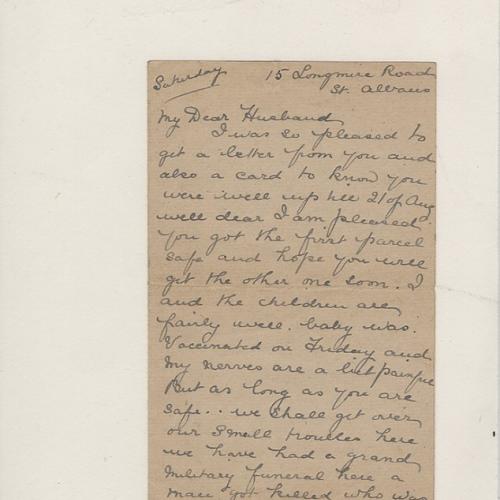 Saturday
15 Longmire Road
St. Albans
My Dear Husband
I was so pleased to
get a letter from you and
also a card to know you
were well up till 21 of Aug.
well dear I am pleased
you got the first parcel
safe and hope you will
get the other one soon. I
and the children are
fairly well. baby was.
Vaccinated on Friday and
My nerves are a bit painful
But as long as you are
safe.. we shall get over
our small troubles here
we have had a grand
Military funeral here a
man got killed who was